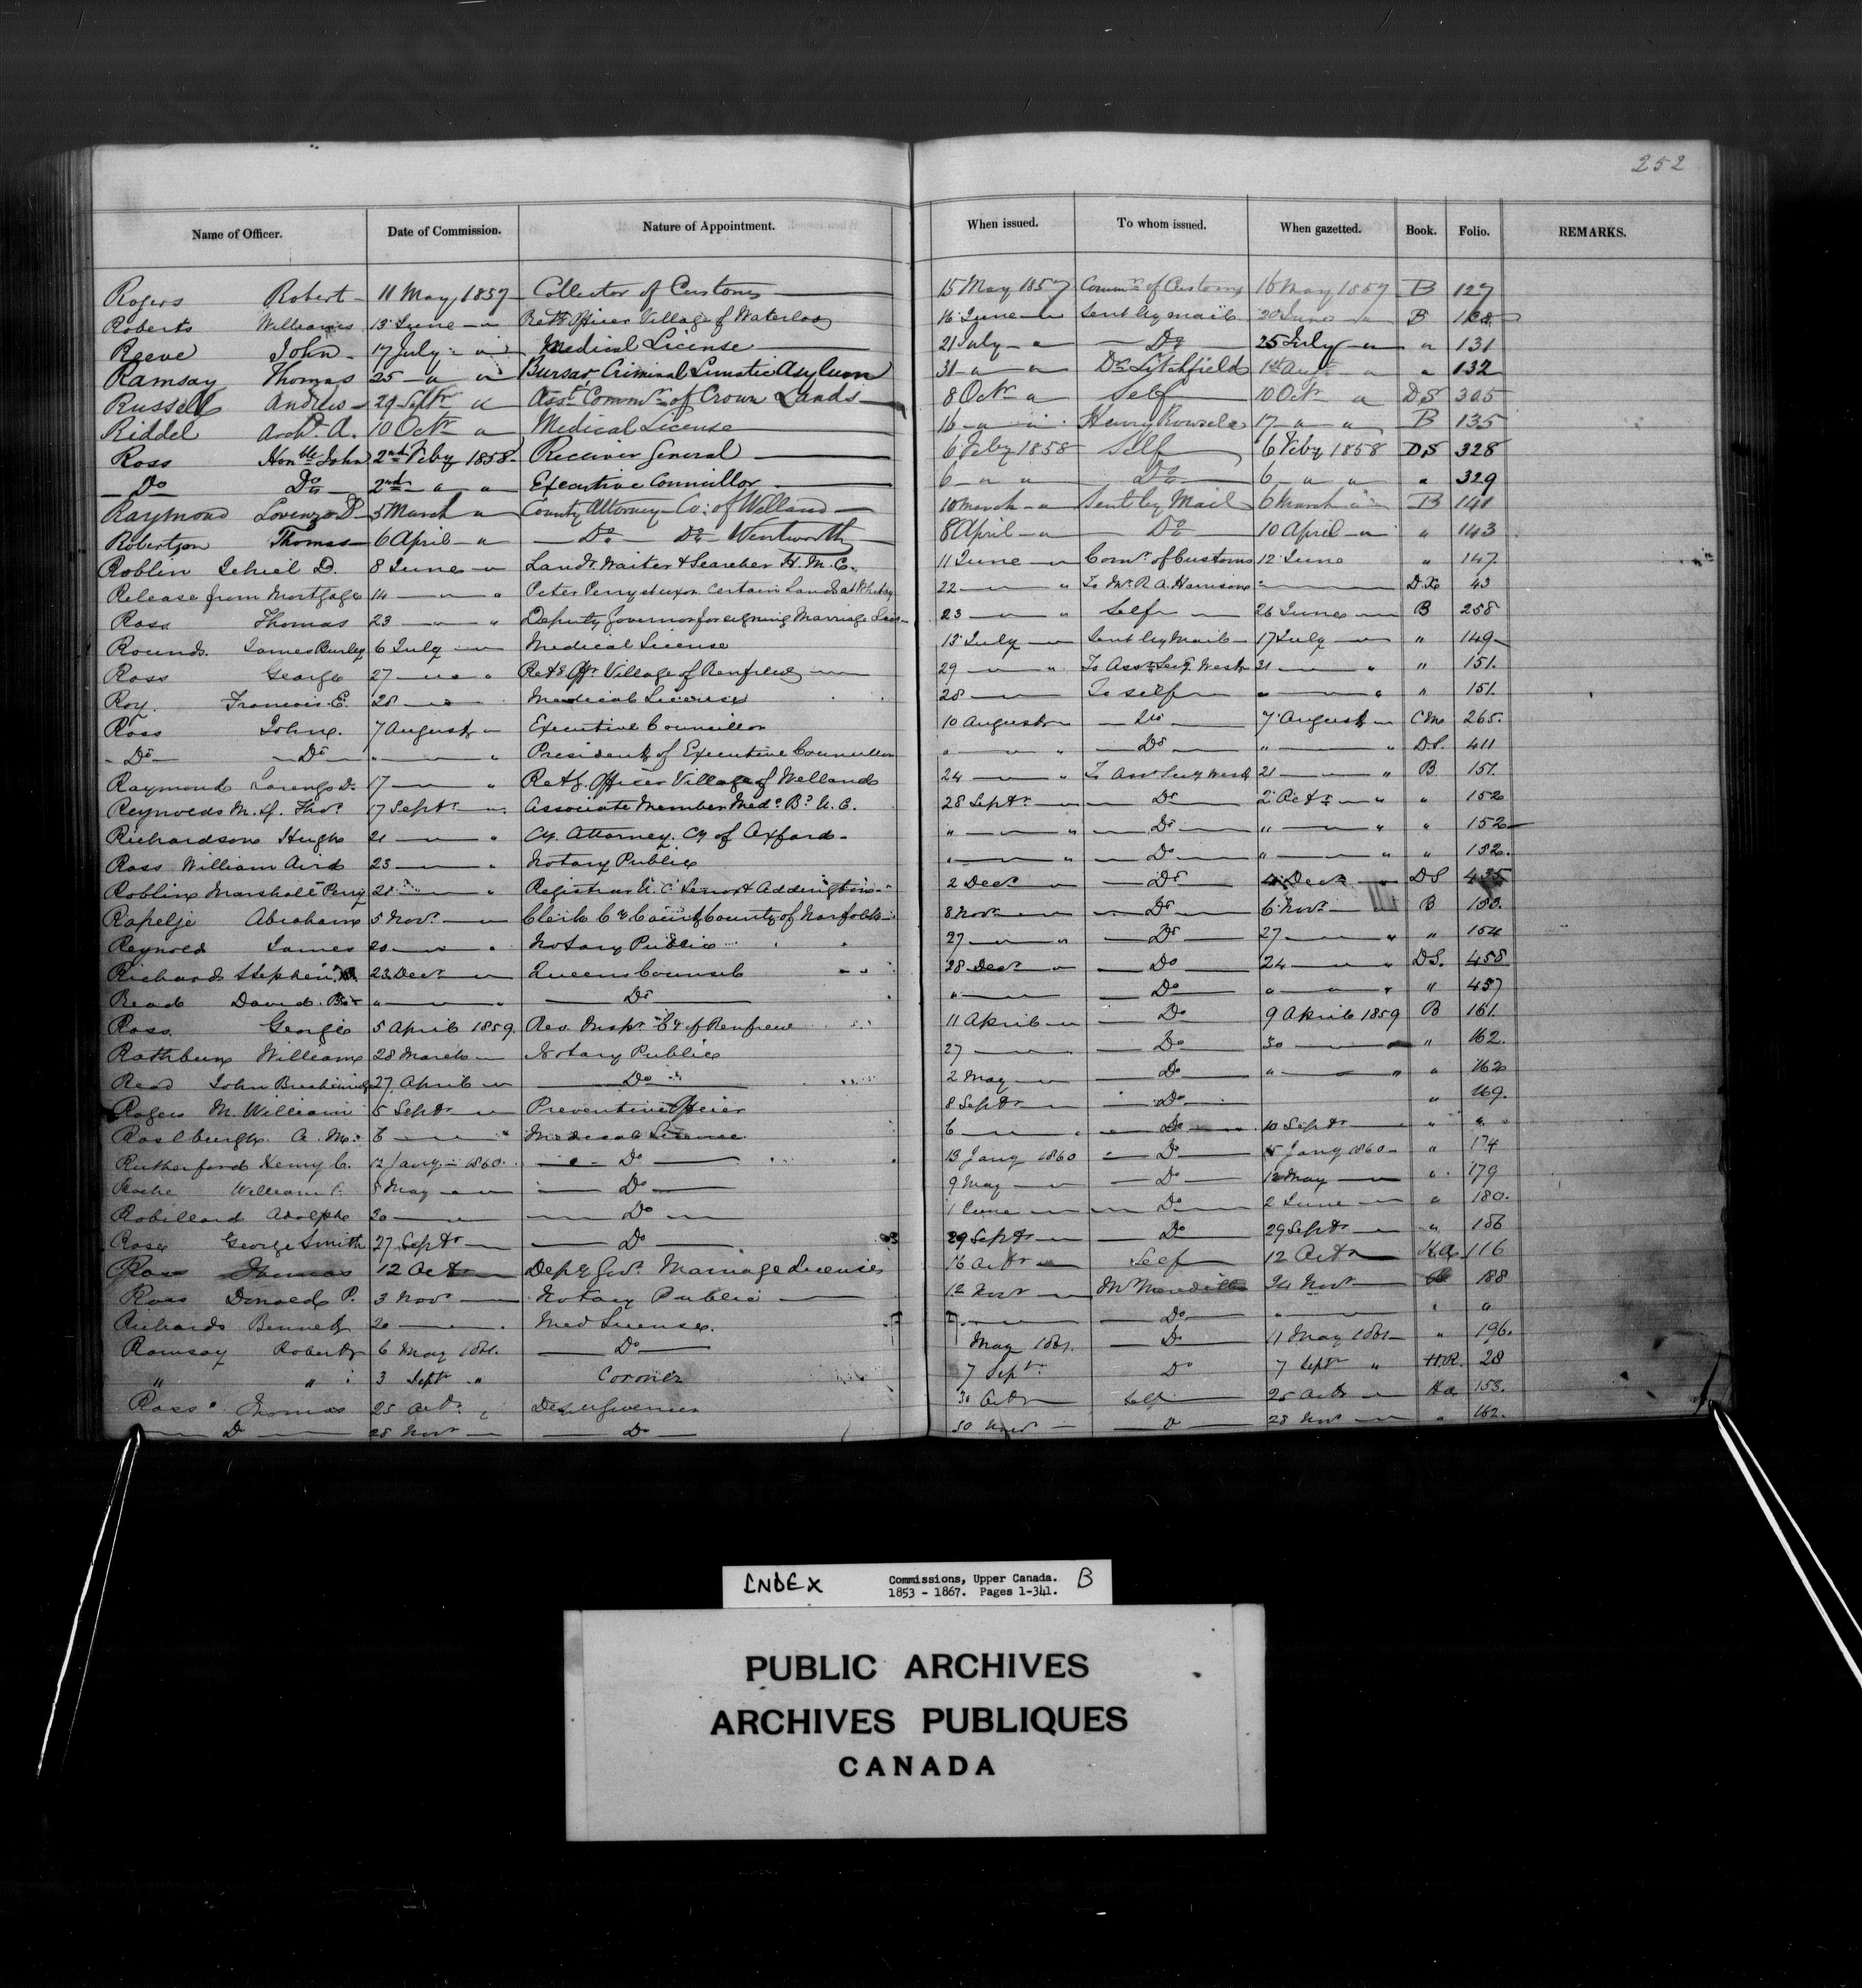 252
Name of Officer. Date of Commission. Nature of Appointment. When issued. To whom issued. When gazetted. Book. Folio. REMARKS.
Rogers Robert 11 May 1857 Collector of Customs 15 May 1857 Commr of Customs 16 May 1857 B 127
Roberts William 13 June " Officer Village of Waterloo 16 June " Sent by mail 20 June " B
Reeve John 17 July " " Medical License 21 July " Do 25 July " " 131
Ramsay Thomas 25 " " Bursar Criminal Lunatic Asylum 31 " " Dr Litchfield 1st Augt " " 132
Russell Andrew 29 Septr " Asst Commr of Crown Lands 8 Octr " Self 10 Octr " D.S 305
Riddel Archd A. 10 Octr " Medical License 16 " " Henry Rowsell 17 " " B 135
Ross Honble John 2nd Feby 1858 Receiver General 6 Feby 1858 Self 6 Feby 1858 D.S 328
Do Do 2nd " " Executive Councillor 6 " " Do 6 " " " 329
Raymond Lorenzo D 5 March " County Attorney Co: of Welland 10 March " Sent by Mail 6 March " B 141
Robertson Thomas 6 April " Do Do Wentworth 8 April " Do 10 April " " 143
Roblin Jehiel D. 8 June " Landg Waiter & Searcher H. M. C. 11 June " Comr of Customs 12 June " 147
Release from Mortgage 14 " " Peter Perry et uxor. Certain Lands at Whitby 22 " " To Mr R. A. Harrison 43
Ross Thomas 23 " " Deputy Governor for signing Marriage 23 " " Self 26 June " B 258
Rounds James Burley 6 July " Medical License 13 July " Sent by Mail 17 July " " 149
Ross George 27 " " Retg Offr Village of Renfrew 29 " " To Asst Secy West 31 " " " 151.
Roy. Francois E. 28 " Medical License 28 " To self " " " 151.
Ross John. 7 August " Executive Councillor 10 August " Do 7 August " C.M 265.
Do Do " " President of Executive Councillor " " " Do " " D.S. 411
Raymond Lorenzo D. 17 " " Retg. Officer Village of Welland 24 " " To Asst Secy West 21 " " B 151.
Reynolds M. Thos. 17 Septr " Associate Member Medl Bd U. C. 28 Septr " Do 2 Octr " " " 152
Richardson Hugh 21 " " Cy. Attorney. Cy of Oxford " " " Do " " " 152
Ross William Aird 23 " " Notary Public " " " Do " " " 152.
Roblin Marshall Perry 21 " " Registrar U. C. Lenox & Addington 2 Decr " Do 4 Decr " D.S
Rapelje Abraham 5 Novr " Clerk Cy Court County of Norfolk 8 Novr " Do 6 Novr " B 153.
Reynold James 20 " " Notary Public 27 " " Do 27 " " " 154
Richards Stephen 23 Decr " Queens Counsel 28 Decr " Do 24 " " D.S. 458
Read David. " " " Do " " Do " " " " 457
Ross George 5 April 1859. Rev. Inspr Cy of Renfrew 11 April " Do 9 April 1859 B 161.
Rathbun William 28 March " Notary Public 27 " Do 30 " " 162.
Read John 27 April " Do 2 May " Do " " " 162
Rogers M. William 5 Septr " Preventive Officer 8 Septr " Do " 169.
A. M. 6 " " Medical License 6 " Do 10 Septr " " "
Rutherford Henry C. 12 Jany 1860. Do 13 Jany 1860 Do Jany 1860 " 174
Roche William 8 May " Do 9 May " Do 12 May " 179
Robillard Adolphe 30 " Do 1 June " Do 2 June " " 180.
George Smith 27 Septr Do 29 Septr " Do 29 Septr " " 186
Ross Thomas 12 Octr Depy Govr Marriage Licenses 16 Octr Self 12 Octr 116
Ross Donald P. 3 Novr Notary Public 12 Novr Mr Meredith 24 Novr 188
Richards Bennett 20 " Med License. Do " " "
Ramsay Robert 6 May 1861. Do May 1861. Do 11 May 1861 " 196.
" " 3 Septr " Coroner 7 Septr Do 7 Septr " 28
Ross Thomas 25 Octr Dep Governor 30 Octr Self 25 Octr 153.
Do 28 Novr Do 30 Novr Do 28 Novr " 162.
INDEX Commissions, Upper Canada. B
1853 - 1867. Pages 1-341.
PUBLIC ARCHIVES
ARCHIVES PUBLIQUES
CANADA